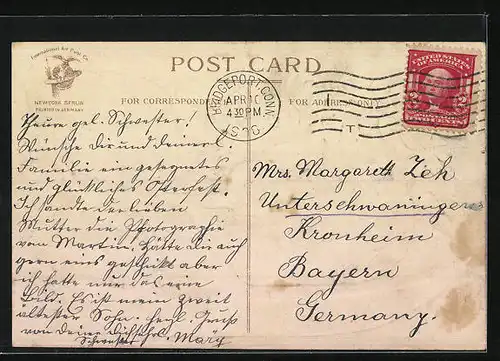 International Art Publ. Co.
NEW YORK BERLIN
PRINTED IN GERMANY
POST CARD
FOR CORRESPONDENCE
FOR ADDRESS ONLY
BRIDGEPORT, CONN.
APR
4 30 PM
1906
T
UNITED STATES
OF AMERICA
2 2
TWO CENTS
Theure gel. Schwester!
Wünsche Dir und deiner l.
Familie ein gesegnetes
und glückliches Osterfest.
Ich sandte der lieben
Mutter die Photographie
von Martin. Hätte dir auch
gern eins geschickt aber
ich hatte nur das eine
Bild. Es ist mein zweit
ältester Sohn. herl. Gruss
von Deiner dich
Schwester Mary
Mrs. Margareth Zeh
Unterschwaningen
Kronheim
Bayern
Germany.